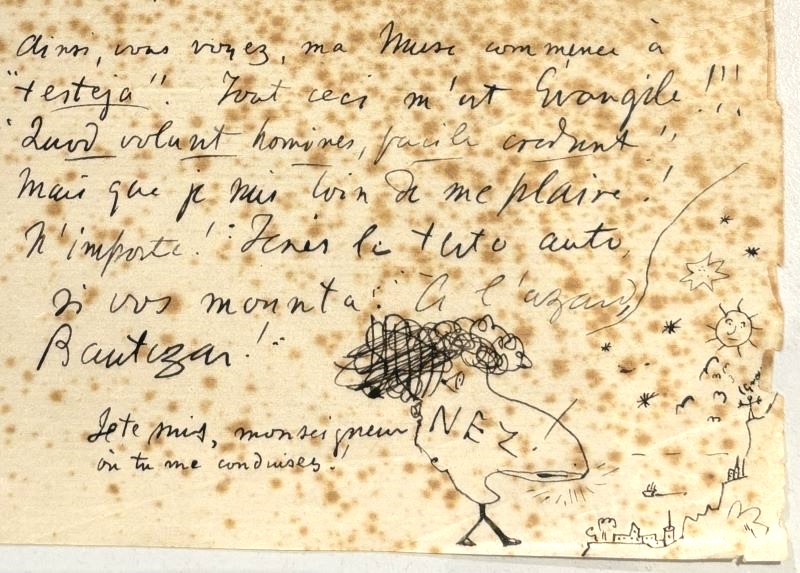 Ainsi, vous voyez, ma Muse commence à
"testeja"! Tout ceci m'est Évangile!!!
"Quod volunt homines, facile credunt"!
Mais que je suis loin de me plaire!
N'importe! Tenès la testo auto,
si vos mounta! A l'azard,
Bautezar!
Je te suis, monseigneur
où tu me conduises!
NEZ.